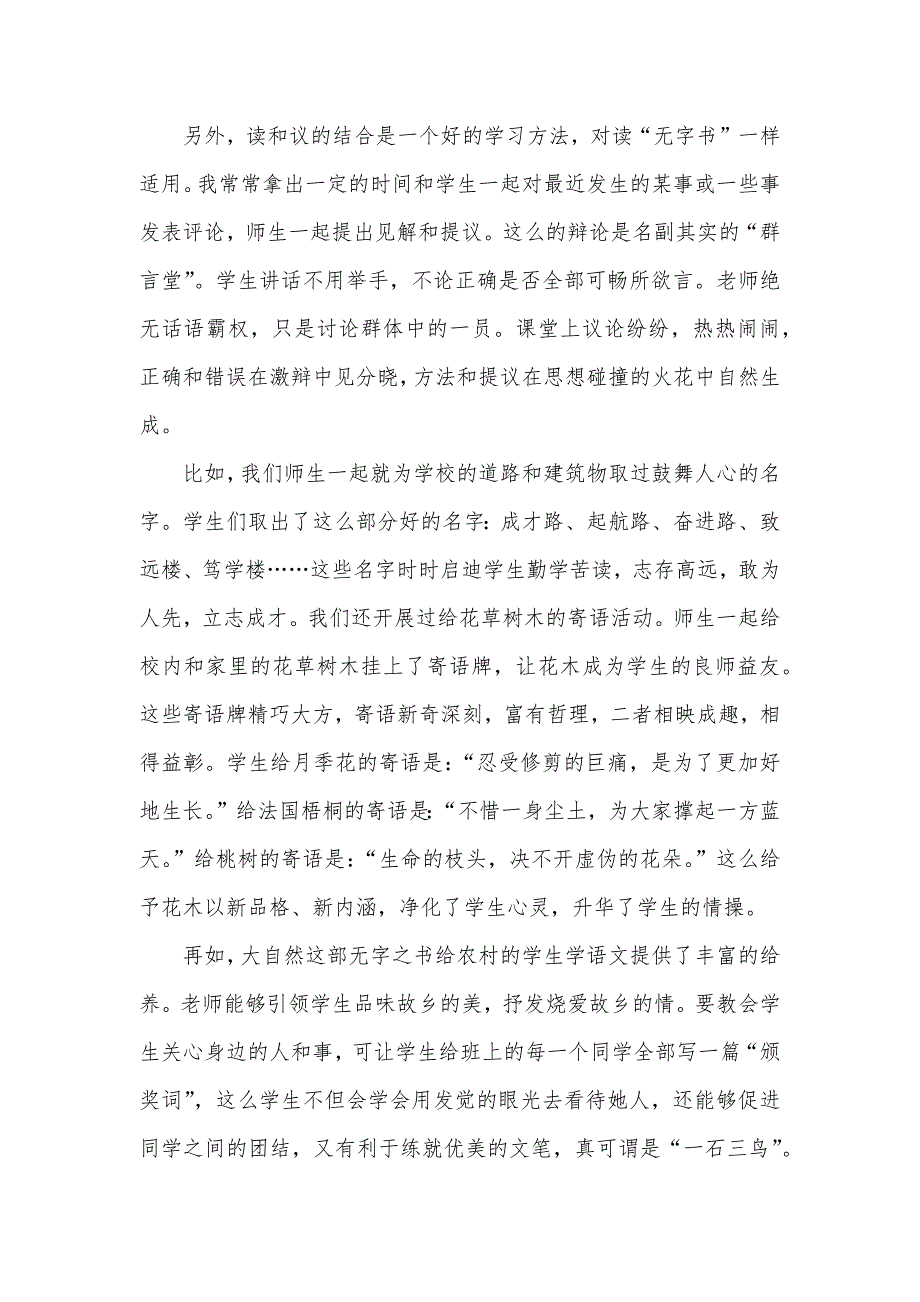 另外，读和议的结合是一个好的学习方法，对读“无字书”一样
适用。我常常拿出一定的时间和学生一起对最近发生的某事或一些事
发表评论，师生一起提出见解和提议。这么的辩论是名副其实的“群
言堂”。学生讲话不用举手，不论正确是否全部可畅所欲言。老师绝
无话语霸权，只是讨论群体中的一员。课堂上议论纷纷，热热闹闹，
正确和错误在激辩中见分晓，方法和提议在思想碰撞的火花中自然生
成。
比如，我们师生一起就为学校的道路和建筑物取过鼓舞人心的名
字。学生们取出了这么部分好的名字：成才路、起航路、奋进路、致
远楼、笃学楼……这些名字时时启迪学生勤学苦读，志存高远，敢为
人先，立志成才。我们还开展过给花草树木的寄语活动。师生一起给
校内和家里的花草树木挂上了寄语牌，让花木成为学生的良师益友。
这些寄语牌精巧大方，寄语新奇深刻，富有哲理，二者相映成趣，相
得益彰。学生给月季花的寄语是：“忍受修剪的巨痛，是为了更加好
地生长。”给法国梧桐的寄语是：“不惜一身尘土，为大家撑起一方蓝
天。”给桃树的寄语是：“生命的枝头，决不开虚伪的花朵。”这么给
予花木以新品格、新内涵，净化了学生心灵，升华了学生的情操。
再如，大自然这部无字之书给农村的学生学语文提供了丰富的给
养。老师能够引领学生品味故乡的美，抒发烧爱故乡的情。要教会学
生关心身边的人和事，可让学生给班上的每一个同学全部写一篇“颁
奖词”，这么学生不但会学会用发觉的眼光去看待她人，还能够促进
同学之间的团结，又有利于练就优美的文笔，真可谓是“一石三鸟”。